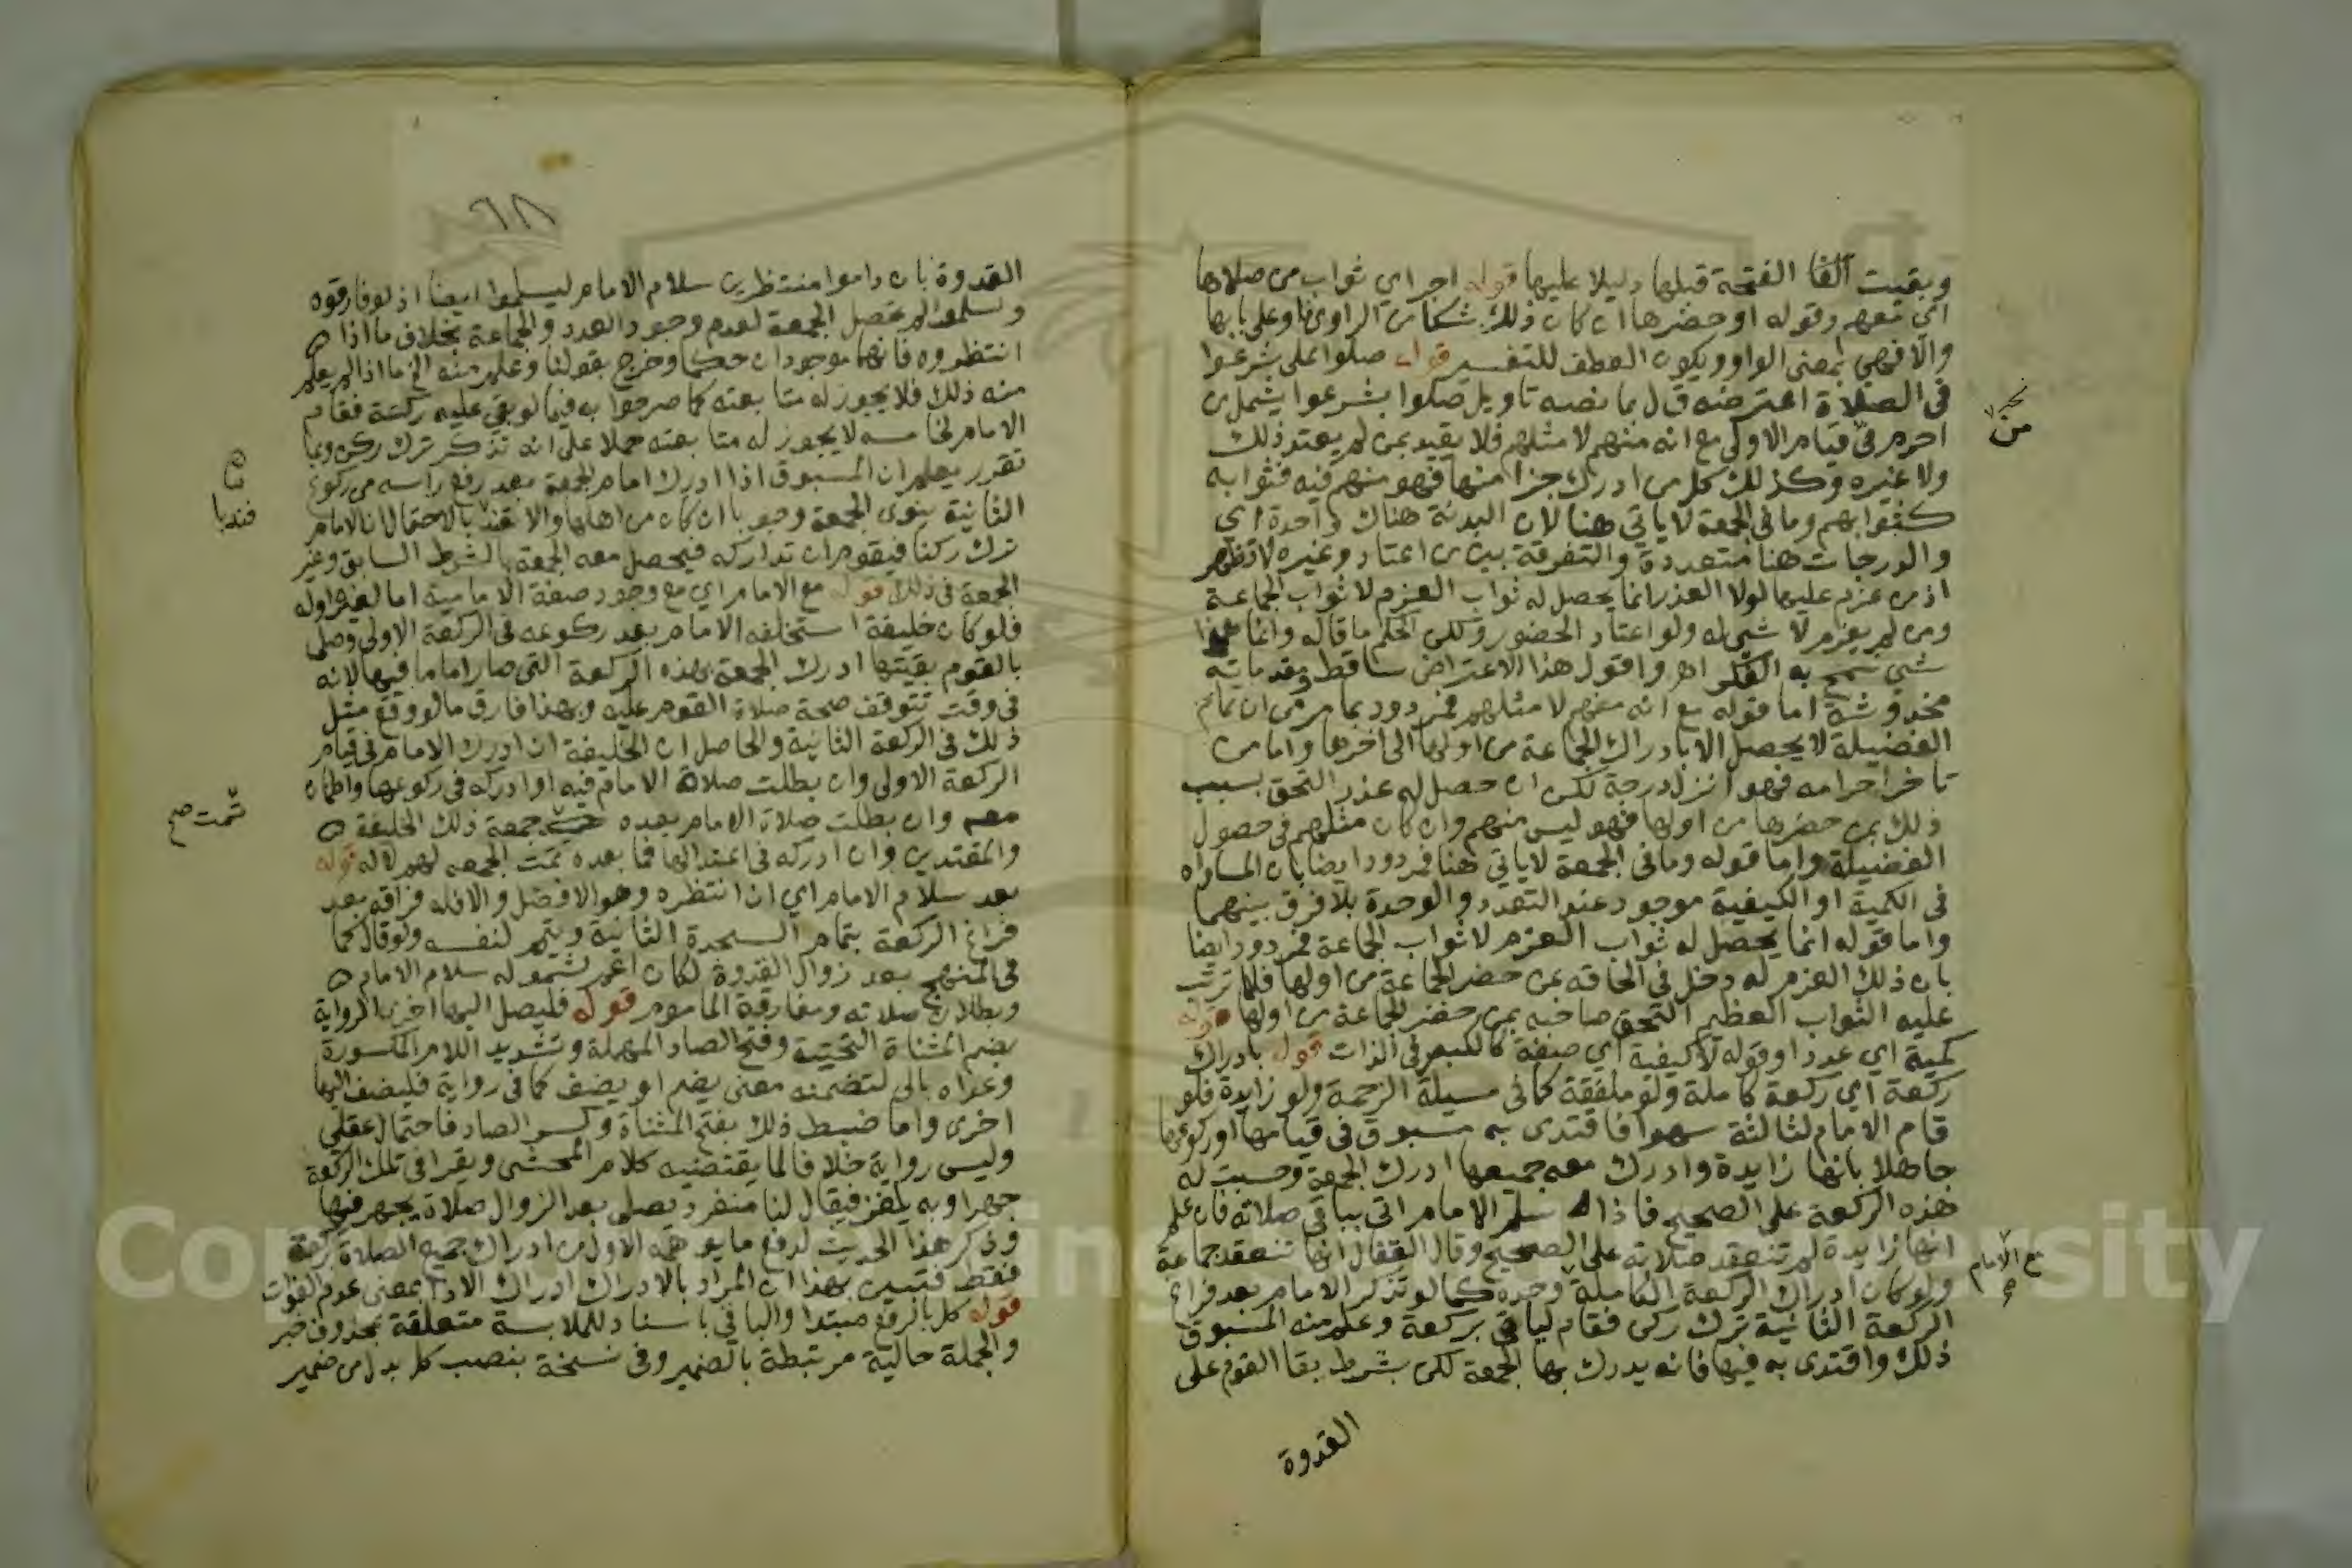 وبقيت الفا الفتحة قبلها دليلا عليها قوله اجر اي ثواب من صلاها
اي معهم وقوله او حضرها ان كان ذلك شكا من الراوي فاو على بابها
والا فهي بمعنى الواو ويكون العطف للتفسير قوله صلوا على شرعوا
في الصلاة اعترضه ق ل بما نصه تاويل صلوا بشرعوا يشمل من
احرم في قيام الاولى مع انه منهم لا مثلهم فلا يقيد بمن لم يعتد ذلك
ولا غيره وكذلك كل من ادرك جزا منها فهو منهم فيه فثوابه
كثوابهم وما في الجمعة لا ياتي هنا لان البدنة هناك واحدة اي
والدرجات هنا متعددة والتفرقة بين من اعتاد وغيره لا تظهر
اذ من عزم عليها لولا العذر انما يحصل له ثواب العزم لا ثواب الجماعة
ومن لم يعزم لا شي له ولو اعتاد الحضور وكلن الحكم ما قاله وانما هذا
شي سمح به الفكر اهـ واقول هذا الاعتراض ساقط ومقدماته
مخدوشة اما قوله مع انه منهم لا مثلهم فمردود بما مر من ان تمام
الفضيلة لا يحصل الا بادراك الجماعة من اولها الى اخرها واما من
تاخر احرامه فهو انزل درجة لكن ان حصل له عذر التحق بسبب
ذلك بمن حضرها من اولها فهو ليس منهم وان كان مثلهم في حصول
الفضيلة واما قوله وما في الجمعة لا ياتي هنا فمردود ايضا بان المساواه
في الكمية او الكيفية موجود عند التعدد والوحدة بلا فرق بينهما
واما قوله انما يحصل له ثواب العزم لا ثواب الجماعة فمردود ايضا
بان ذلك العزم له دخل في الحاقه بمن حضر الجماعة من اولها فلما ترتب
عليه الثواب العظيم التحق صاحبه بمن حضر الجماعة من اولها قوله
كمية اي عددا وقوله لا كيفية اي صفة كالكبر في الذات قوله بادراك
ركعة اي ركعة كاملة ولو ملفقة كما في مسيلة الزحمة ولو زايدة فلو
قام الامام لثالثة سهوا فاقتدى به مسبوق في قيامها او ركوعها
جاهلا بانها زايدة وادرك معه جميعها ادرك الجمعة وحسبت له
هذه الركعة على الصحيح فاذا سلم الامام اتى بباقي صلاته فان علم
انها زايدة لم تنعقد صلاته على الصحيح وقال القفال انها تنعقد جماعة
ولو كان ادراك الركعة الكاملة وحده كما لو تذكر الامام بعد فراغ
الركعة الثانية ترك ركن فقام لياتي بركعة وعلم منه المسبوق
ذلك واقتدى به فيها فانه يدرك بها الجمعة لكن بشرط بقا القوم على
من
مع الامام
القدوة
القدوة بان داموا منتظرين سلام الامام ليسلموا ايضا اذ لو فارقوه
وسلموا لم تحصل الجمعة لعدم وجود العدد والجماعة بخلاف ما اذا
انتظروه فانهما موجودان حكما وخرج بقولنا وعلم منه الخ ما اذا لم يعلم
منه ذلك فلا يجوز له متابعته كما صرحوا به فيما لو بقي عليه ركعة فقام
الامام لخامسة لا يجوز له متابعته حملا على انه تذكر ترك ركن وبما
تقرر يعلم ان المسبوق اذا ادرك امام الجمعة بعد رفع راسه من ركوع
الثانية ينوي الجمعة وجوبا ان كان من اهلها والا بالاحتمال ان الامام
ترك ركنا فيقوم ان تداركه فيحصل معه الجمعة بالشرط السابق وغير
الجمعة في ذلك قوله مع الامام اي مع وجود صفة الامامية اما
فلو كان خليفة استخلفه الامام بعد ركوعه في الركعة الاولى وصلى
بالقوم بقيتها ادرك الجمعة بهذه الركعة التي صار اماما فيها لانه
في وقت تتوقف صحة صلاة القوم عليه وبهذا فارق ما لو وقع مثل
ذلك في الركعة الثانية والحاصل ان الخليفة ان ادرك الامام في قيام
الركعة الاولى وان بطلت صلاة الامام فيه او ادركه في ركوعها واطمان
معه وان بطلت صلاة الامام بعده جمعة ذلك الخليفة
والمقتدين وان ادركه في اعتدالها فما بعده تمت الجمعه لهم لا له قوله
بعد سلام الامام اي ان انتظره وهو الافضل والا فله فراقه بعد
فراغ الركعة بتمام السجدة الثانية ويتم لنفسه ولو قال كما
في المنهج بعد زوال القدوة لكان اعم لشموله سلام الامام
وبطلان صلاته ومفارقة الماموم قوله فليصل اليها اخرى الرواية
بضم المثناة التحتية وفتح الصاد المهملة وتشديد اللام المكسورة
وعداه بالى لتضمنه معنى يضم او يضف كما في رواية فليضف اليها
اخرى واما ضبط ذلك بفتح المثناة وكسر الصاد فاحتمال عقلي
وليس رواية خلافا لما يقتضيه كلام المحشي ويقرا في تلك الركعة
جهرا وبه يلغز فيقال لنا منفرد يصلي بعد الزوال صلاة يجهر فيها
وذكر هذا الحديث لدفع ما يوهمه الاول من ادراك جميع الصلاة بركعة
فقط فتبين بهذا ان المراد بالادراك ادراك الادا بمعنى عدم الفوات
قوله كل بالرفع مبتدا والبا في باسناد للملابسة متعلقة بمحذوف خبر
والجملة حالية مرتبطة بالضمير وفي نسخة بنصب كل بدل من ضمير
فندبا
تمت صح